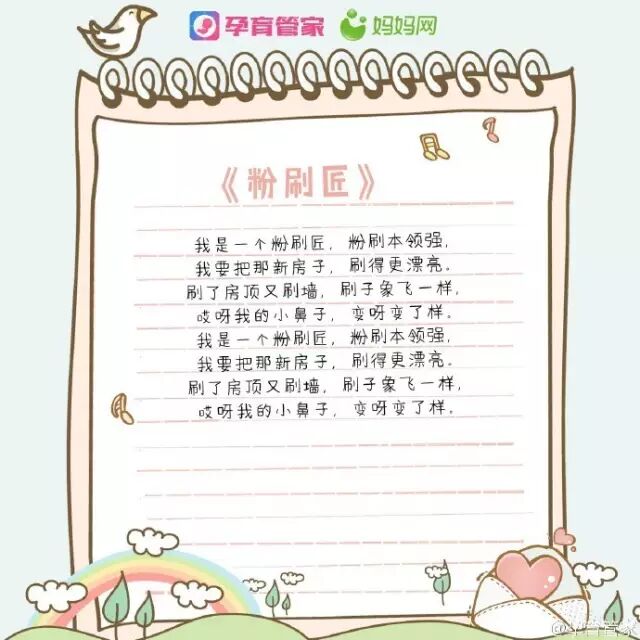 孕育管家 妈妈网
《粉刷匠》
我是一个粉刷匠，粉刷本领强，
我要把那新房子，刷得更漂亮。
刷了房顶又刷墙，刷子象飞一样，
哎呀我的小鼻子，变呀变了样。
我是一个粉刷匠，粉刷本领强，
我要把那新房子，刷得更漂亮。
刷了房顶又刷墙，刷子象飞一样，
哎呀我的小鼻子，变呀变了样。
@孕育管家